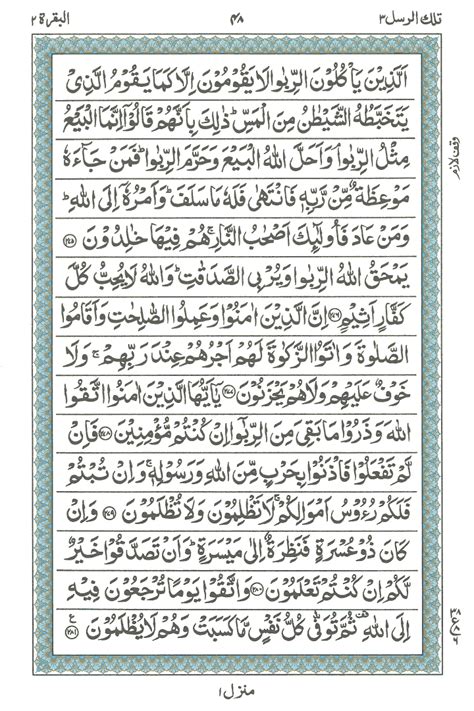 تلك الرسل ٣ ٤٨ البقرة ٢
اَلَّذِيْنَ يَاْكُلُوْنَ الرِّبٰوا لَا يَقُوْمُوْنَ اِلَّا كَمَا يَقُوْمُ الَّذِيْ
يَتَخَبَّطُهُ الشَّيْطٰنُ مِنَ الْمَسِّ ؕ ذٰلِكَ بِاَنَّهُمْ قَالُوْۤا اِنَّمَا الْبَيْعُ
مِثْلُ الرِّبٰوا ۘ وَاَحَلَّ اللّٰهُ الْبَيْعَ وَحَرَّمَ الرِّبٰوا ؕ فَمَنْ جَآءَهٗ
وقف لازم
مَوْعِظَةٌ مِّنْ رَّبِّهٖ فَانْتَهٰى فَلَهٗ مَا سَلَفَ ؕ وَاَمْرُهٗۤ اِلَى اللّٰهِ ؕ
وَمَنْ عَادَ فَاُولٰٓئِكَ اَصْحٰبُ النَّارِ ۚ هُمْ فِيْهَا خٰلِدُوْنَ ﴿۲۷۵﴾
يَمْحَقُ اللّٰهُ الرِّبٰوا وَيُرْبِي الصَّدَقٰتِ ؕ وَاللّٰهُ لَا يُحِبُّ كُلَّ
كَفَّارٍ اَثِيْمٍ ﴿۲۷۶﴾ اِنَّ الَّذِيْنَ اٰمَنُوْا وَعَمِلُوا الصّٰلِحٰتِ وَاَقَامُوا
الصَّلٰوةَ وَاٰتَوُا الزَّكٰوةَ لَهُمْ اَجْرُهُمْ عِنْدَ رَبِّهِمْ ۚ وَلَا
خَوْفٌ عَلَيْهِمْ وَلَا هُمْ يَحْزَنُوْنَ ﴿۲۷۷﴾ يٰۤاَيُّهَا الَّذِيْنَ اٰمَنُوا اتَّقُوا
اللّٰهَ وَذَرُوْا مَا بَقِيَ مِنَ الرِّبٰۤوا اِنْ كُنْتُمْ مُّؤْمِنِيْنَ ﴿۲۷۸﴾ فَاِنْ
لَّمْ تَفْعَلُوْا فَاْذَنُوْا بِحَرْبٍ مِّنَ اللّٰهِ وَرَسُوْلِهٖ ۚ وَاِنْ تُبْتُمْ
فَلَكُمْ رُءُوْسُ اَمْوَالِكُمْ ۚ لَا تَظْلِمُوْنَ وَلَا تُظْلَمُوْنَ ﴿۲۷۹﴾ وَاِنْ
كَانَ ذُوْ عُسْرَةٍ فَنَظِرَةٌ اِلٰى مَيْسَرَةٍ ؕ وَاَنْ تَصَدَّقُوْا خَيْرٌ
لَّكُمْ اِنْ كُنْتُمْ تَعْلَمُوْنَ ﴿۲۸۰﴾ وَاتَّقُوْا يَوْمًا تُرْجَعُوْنَ فِيْهِ
اِلَى اللّٰهِ ۫ ثُمَّ تُوَفّٰى كُلُّ نَفْسٍ مَّا كَسَبَتْ وَهُمْ لَا يُظْلَمُوْنَ ﴿۲۸۱﴾
منزل ١